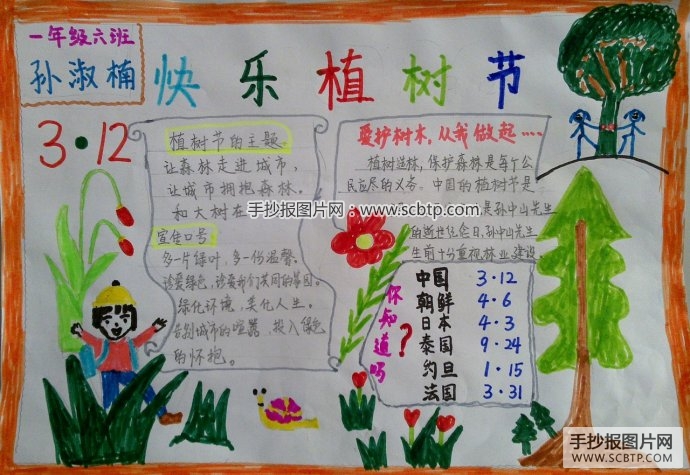 一年级六班
孙淑楠
快乐植树节
3·12
植树节的主题
让森林走进城市，
让城市拥抱森林。
和大树在
宣传口号
多一片绿叶，多一份温馨。
珍爱绿色，珍爱我们共同的家园。
绿化环境，美化人生。
告别城市的喧嚣，投入绿色
的怀抱。
爱护树木，从我做起....
植树造林，保护森林是每个公
民应尽的义务。中国的植树节是
是孙中山先生
的逝世纪念日，孙中山先生
生前十分重视林业建设。
你知道吗？
中国 3·12
朝鲜 4·6
日本 4·3
泰国 9·24
约旦 1·15
法国 3·31
手抄报图片网：www.scbtp.com
手抄报图片网
WWW.SCBTP.COM